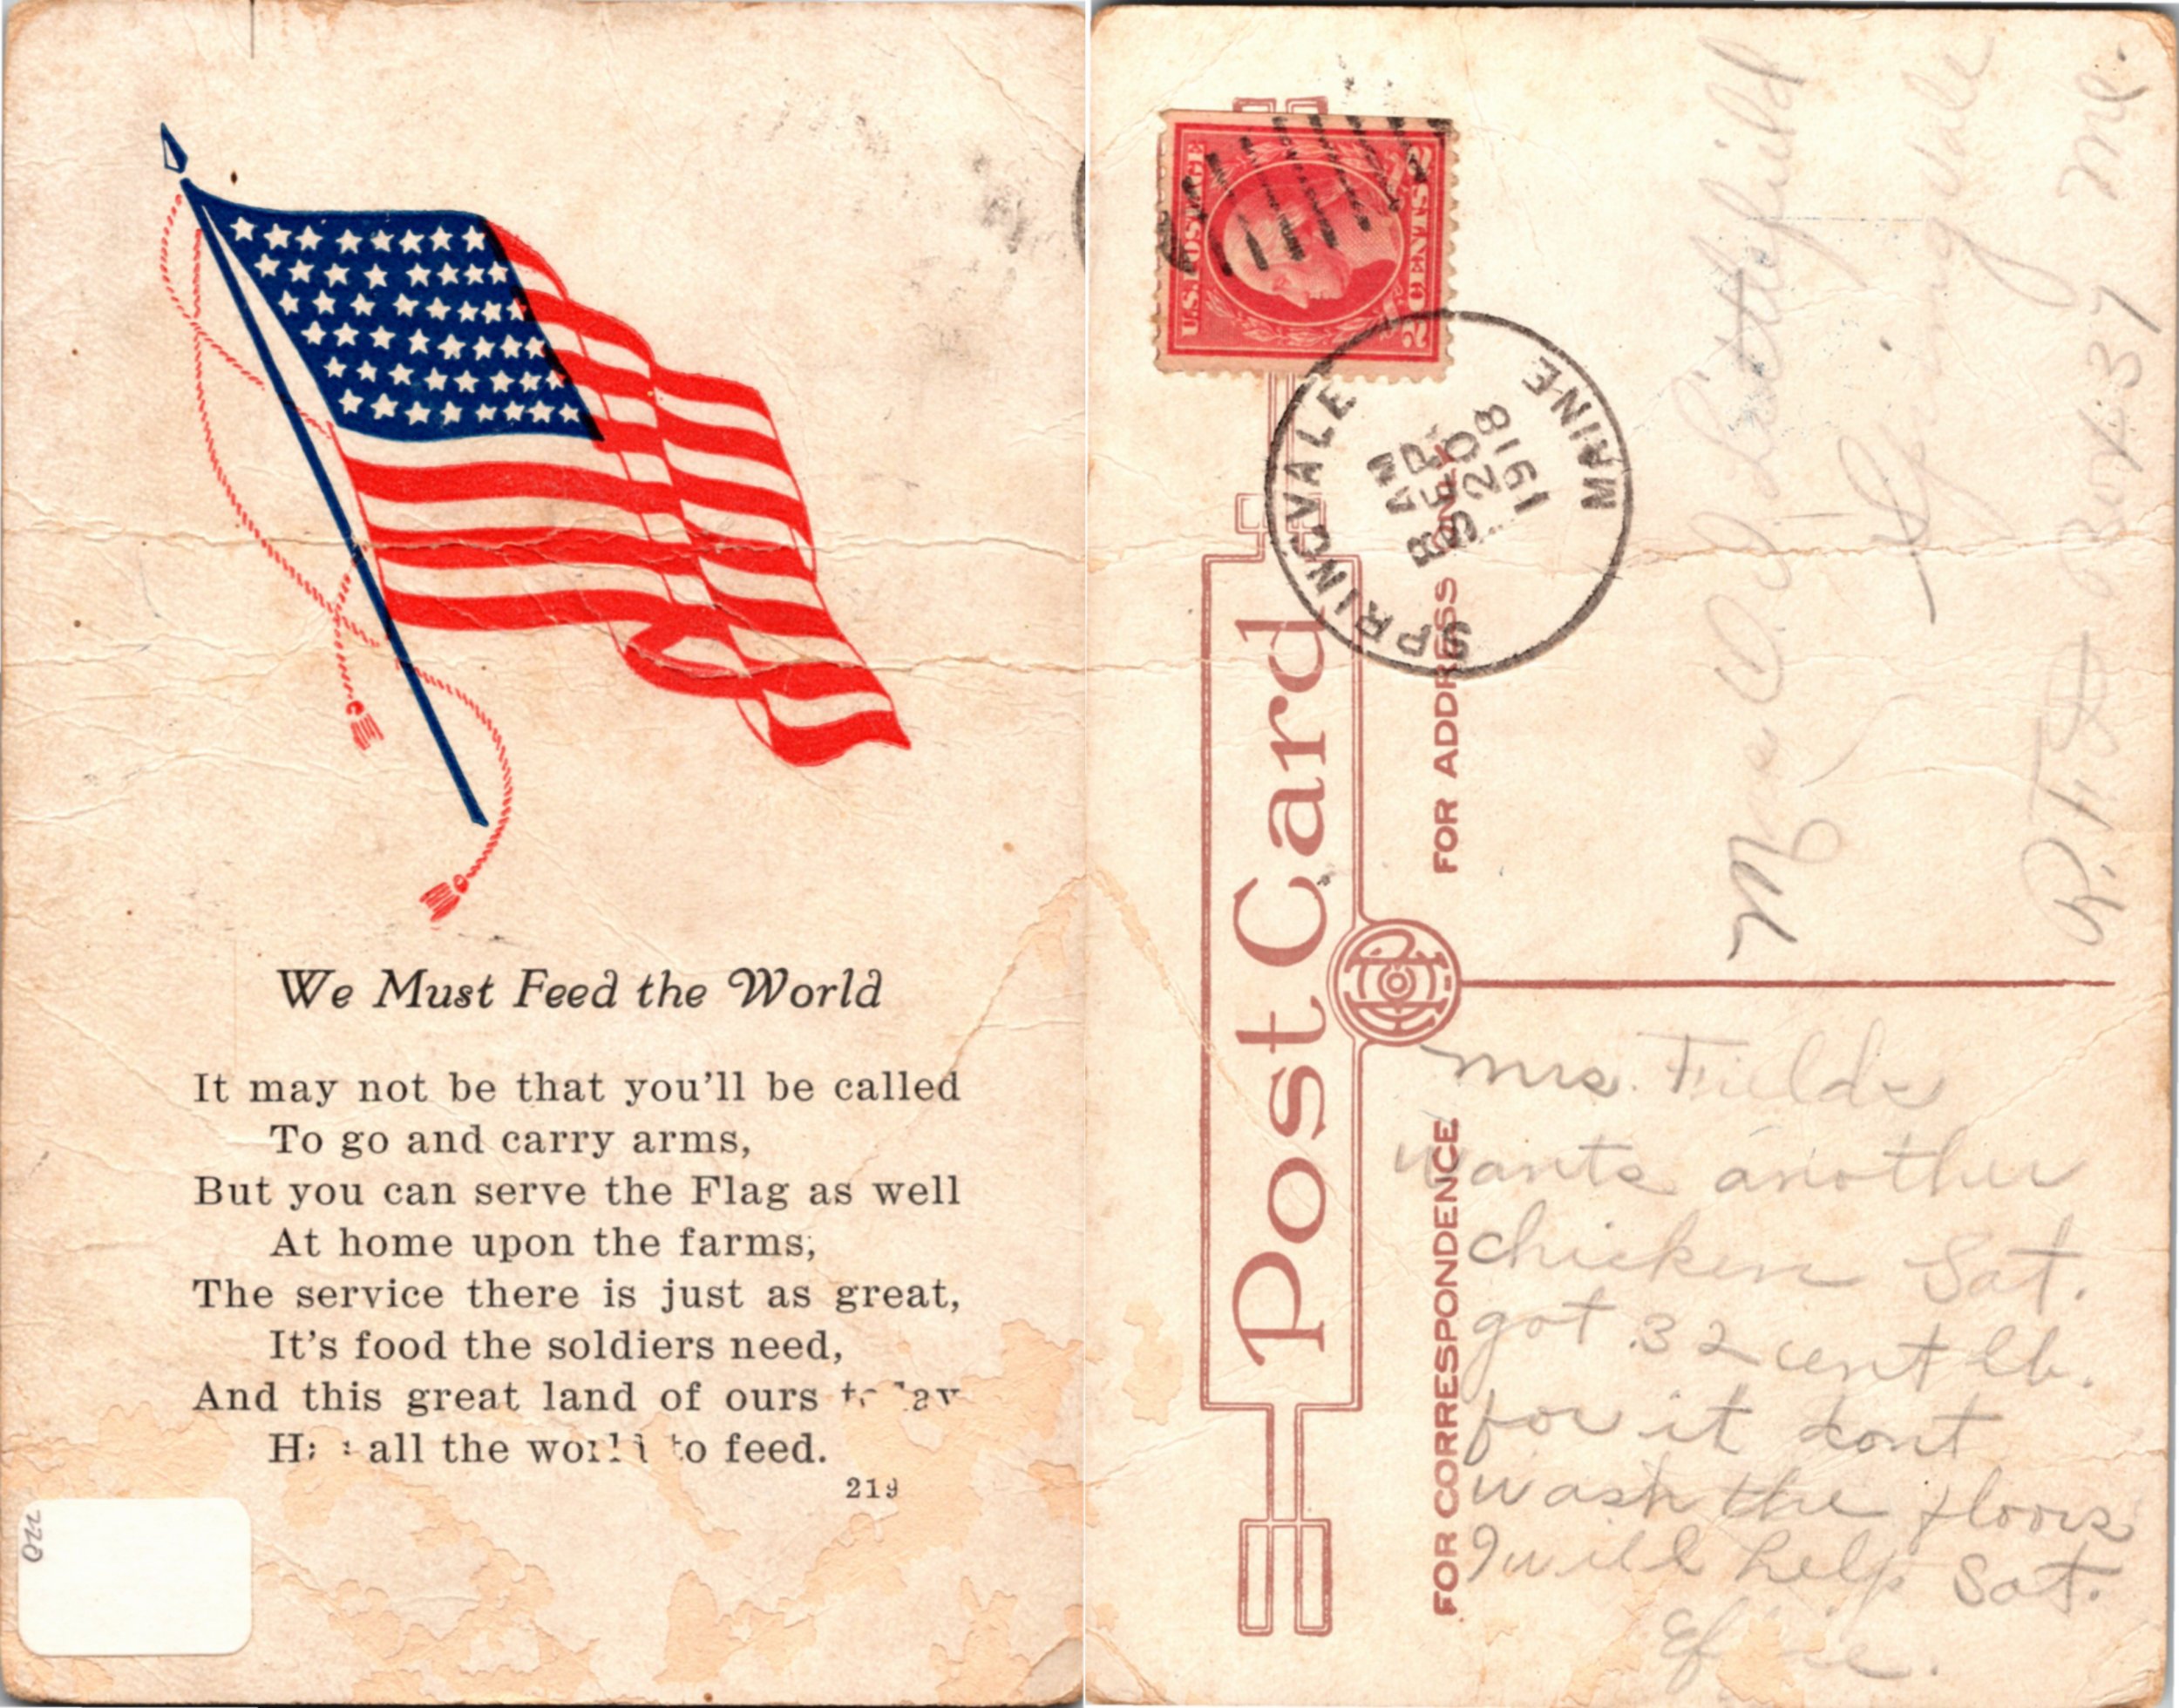 We Must Feed the World
It may not be that you'll be called
To go and carry arms,
But you can serve the Flag as well
At home upon the farms;
The service there is just as great,
It's food the soldiers need,
And this great land of ours today
Has all the world to feed.
219
Post Card
FOR ADDRESS ONLY
FOR CORRESPONDENCE
U.S. POSTAGE
2 CENTS 2
SPRINGVALE
MAINE
SEP 20
AM
1918
Littlefield
Springvale
Me.
Box 37
Mrs. Fields
wants another
chicken Sat.
got 32 cent lb.
for it dont
wash the floors
I will help Sat.
Effie.